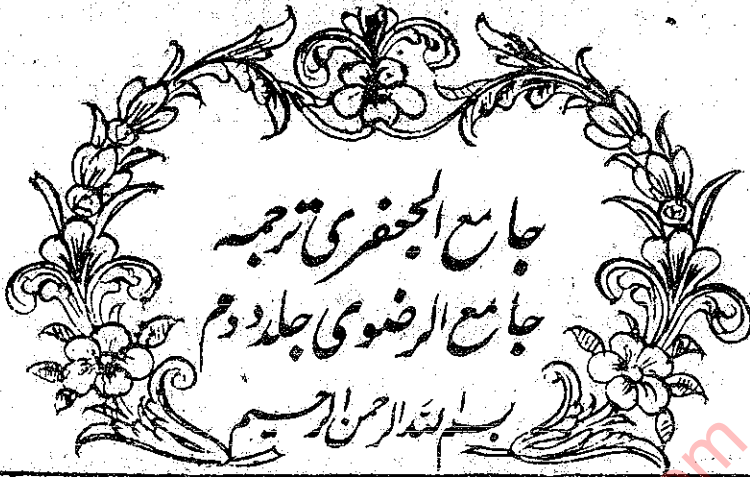 جامع الجعفری ترجمہ
جامع الرضوی جلد دوم
بسم اللہ الرحمن الرحیم
com